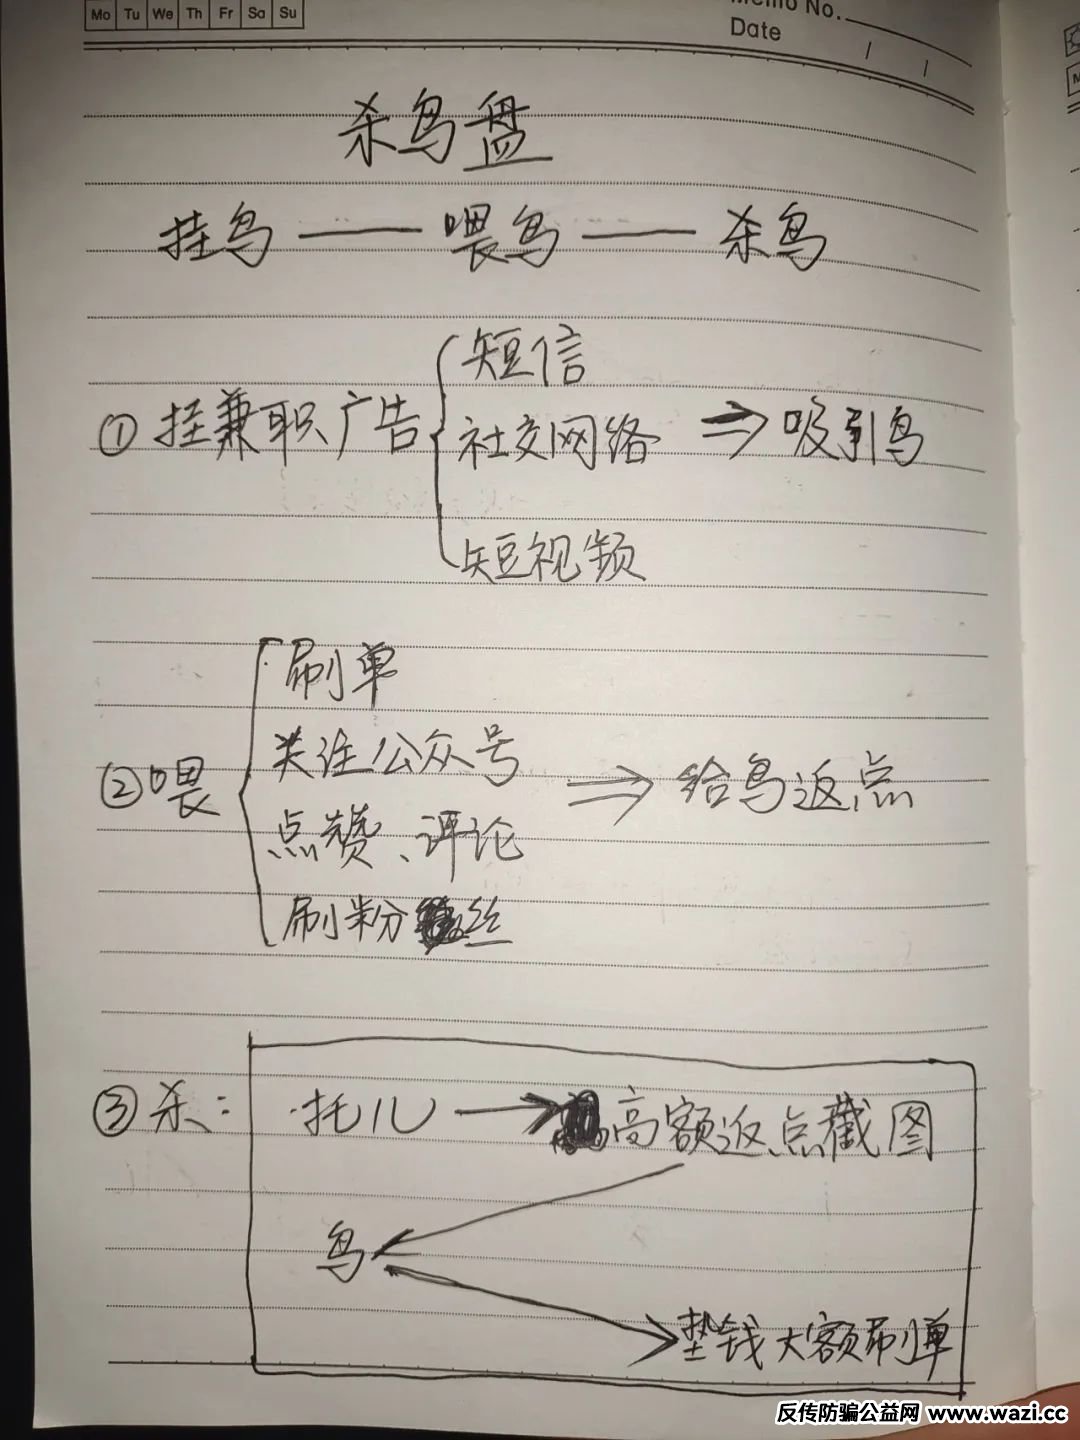 Mo Tu We Th Fr Sa Su
Memo No.
Date / /
杀鸟盘
挂鸟——喂鸟——杀鸟
①挂兼职广告
短信
社交网络 ⇒ 吸引鸟
短视频
②喂
刷单
关注公众号
点赞、评论
刷粉丝
⇒ 给鸟返点
③杀:
托儿 → 高额返点截图
鸟
垫钱大额刷单
反传防骗公益网 www.wazi.cc